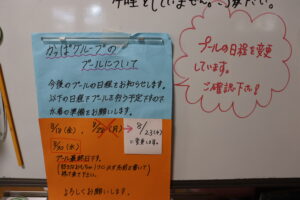 していません。
かっぱグループの
プールについて
今後のプールの日程をお知らせします。
以下の日程でプールを行う予定ですので
水着の準備をお願いします。
8/19(金)、8/22(月)→8/23(火)
に変更します。
プール最終日です。
持って来て下さい。
よろしくお願いします。
プールの日程を変更
しています。
ご確認下さい!